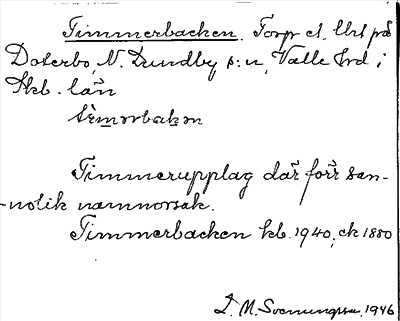 Timmerbacken. Torp et. Utsl på
Doterbo, N. Lundby s:n, Valle hrd i
Skb. län
tìmərbakən
Timmerupplag där förr san-
-nolik namnorsak.
Timmerbacken kb. 1940, ek 1880
D. M. Svenungsson, 1946